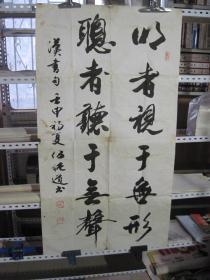 明者視于無形
聰者聽于無聲
漢書句 壬申初夏 伍純道書